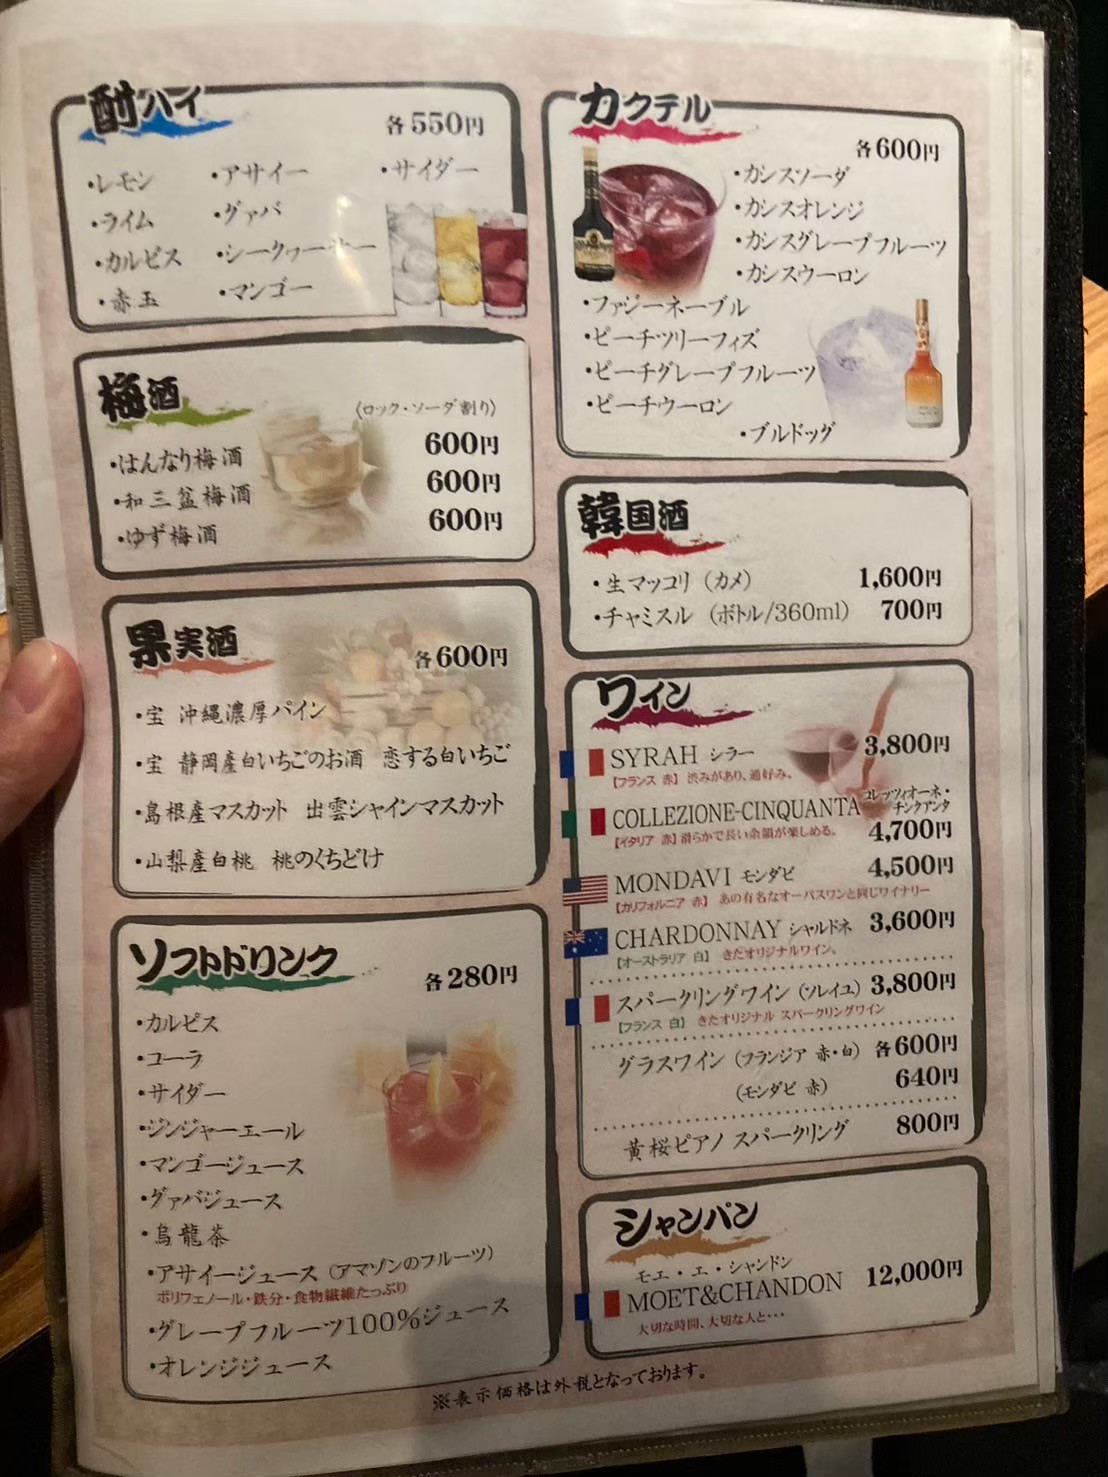 酎ハイ
各550円
・レモン ・アサイー ・サイダー
・ライム ・グァバ
・カルピス ・シークヮーサー
・赤玉 ・マンゴー
梅酒
(ロック・ソーダ割り)
・はんなり梅酒 600円
・和三盆梅酒 600円
・ゆず梅酒 600円
果実酒
各600円
・宝 沖縄濃厚パイン
・宝 静岡産白いちごのお酒 恋する白いちご
・島根産マスカット 出雲シャインマスカット
・山梨産白桃 桃のくちどけ
ソフトドリンク
各280円
・カルピス
・コーラ
・サイダー
・ジンジャーエール
・マンゴージュース
・グァバジュース
・烏龍茶
・アサイージュース(アマゾンのフルーツ)
ポリフェノール・鉄分・食物繊維たっぷり
・グレープフルーツ100%ジュース
・オレンジジュース
カクテル
各600円
・カシスソーダ
・カシスオレンジ
・カシスグレープフルーツ
・カシスウーロン
・ファジーネーブル
・ピーチツリーフィズ
・ピーチグレープフルーツ
・ピーチウーロン
・ブルドッグ
韓国酒
・生マッコリ (カメ) 1,600円
・チャミスル (ボトル/360ml) 700円
ワイン
SYRAH シラー 3,800円
【フランス 赤】 渋みがあり、通好み。
COLLEZIONE-CINQUANTA コレッツィオーネ・チンクアンタ
【イタリア 赤】滑らかで長い余韻が楽しめる。 4,700円
MONDAVI モンダビ 4,500円
【カリフォルニア 赤】 あの有名なオーパスワンと同じワイナリー
CHARDONNAY シャルドネ 3,600円
【オーストラリア 白】 きたオリジナルワイン。
スパークリングワイン (ソレイユ) 3,800円
【フランス 白】 きたオリジナル スパークリングワイン
グラスワイン (フランジア 赤・白) 各600円
(モンダビ 赤) 640円
黄桜ピアノ スパークリング 800円
シャンパン
モエ・エ・シャンドン
MOET&CHANDON 12,000円
大切な時間、大切な人と・・・
※表示価格は外税となっております。